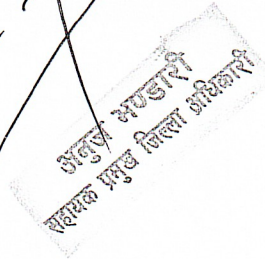 भण्डारी
सहायक प्रमुख जिल्ला अधिकारी